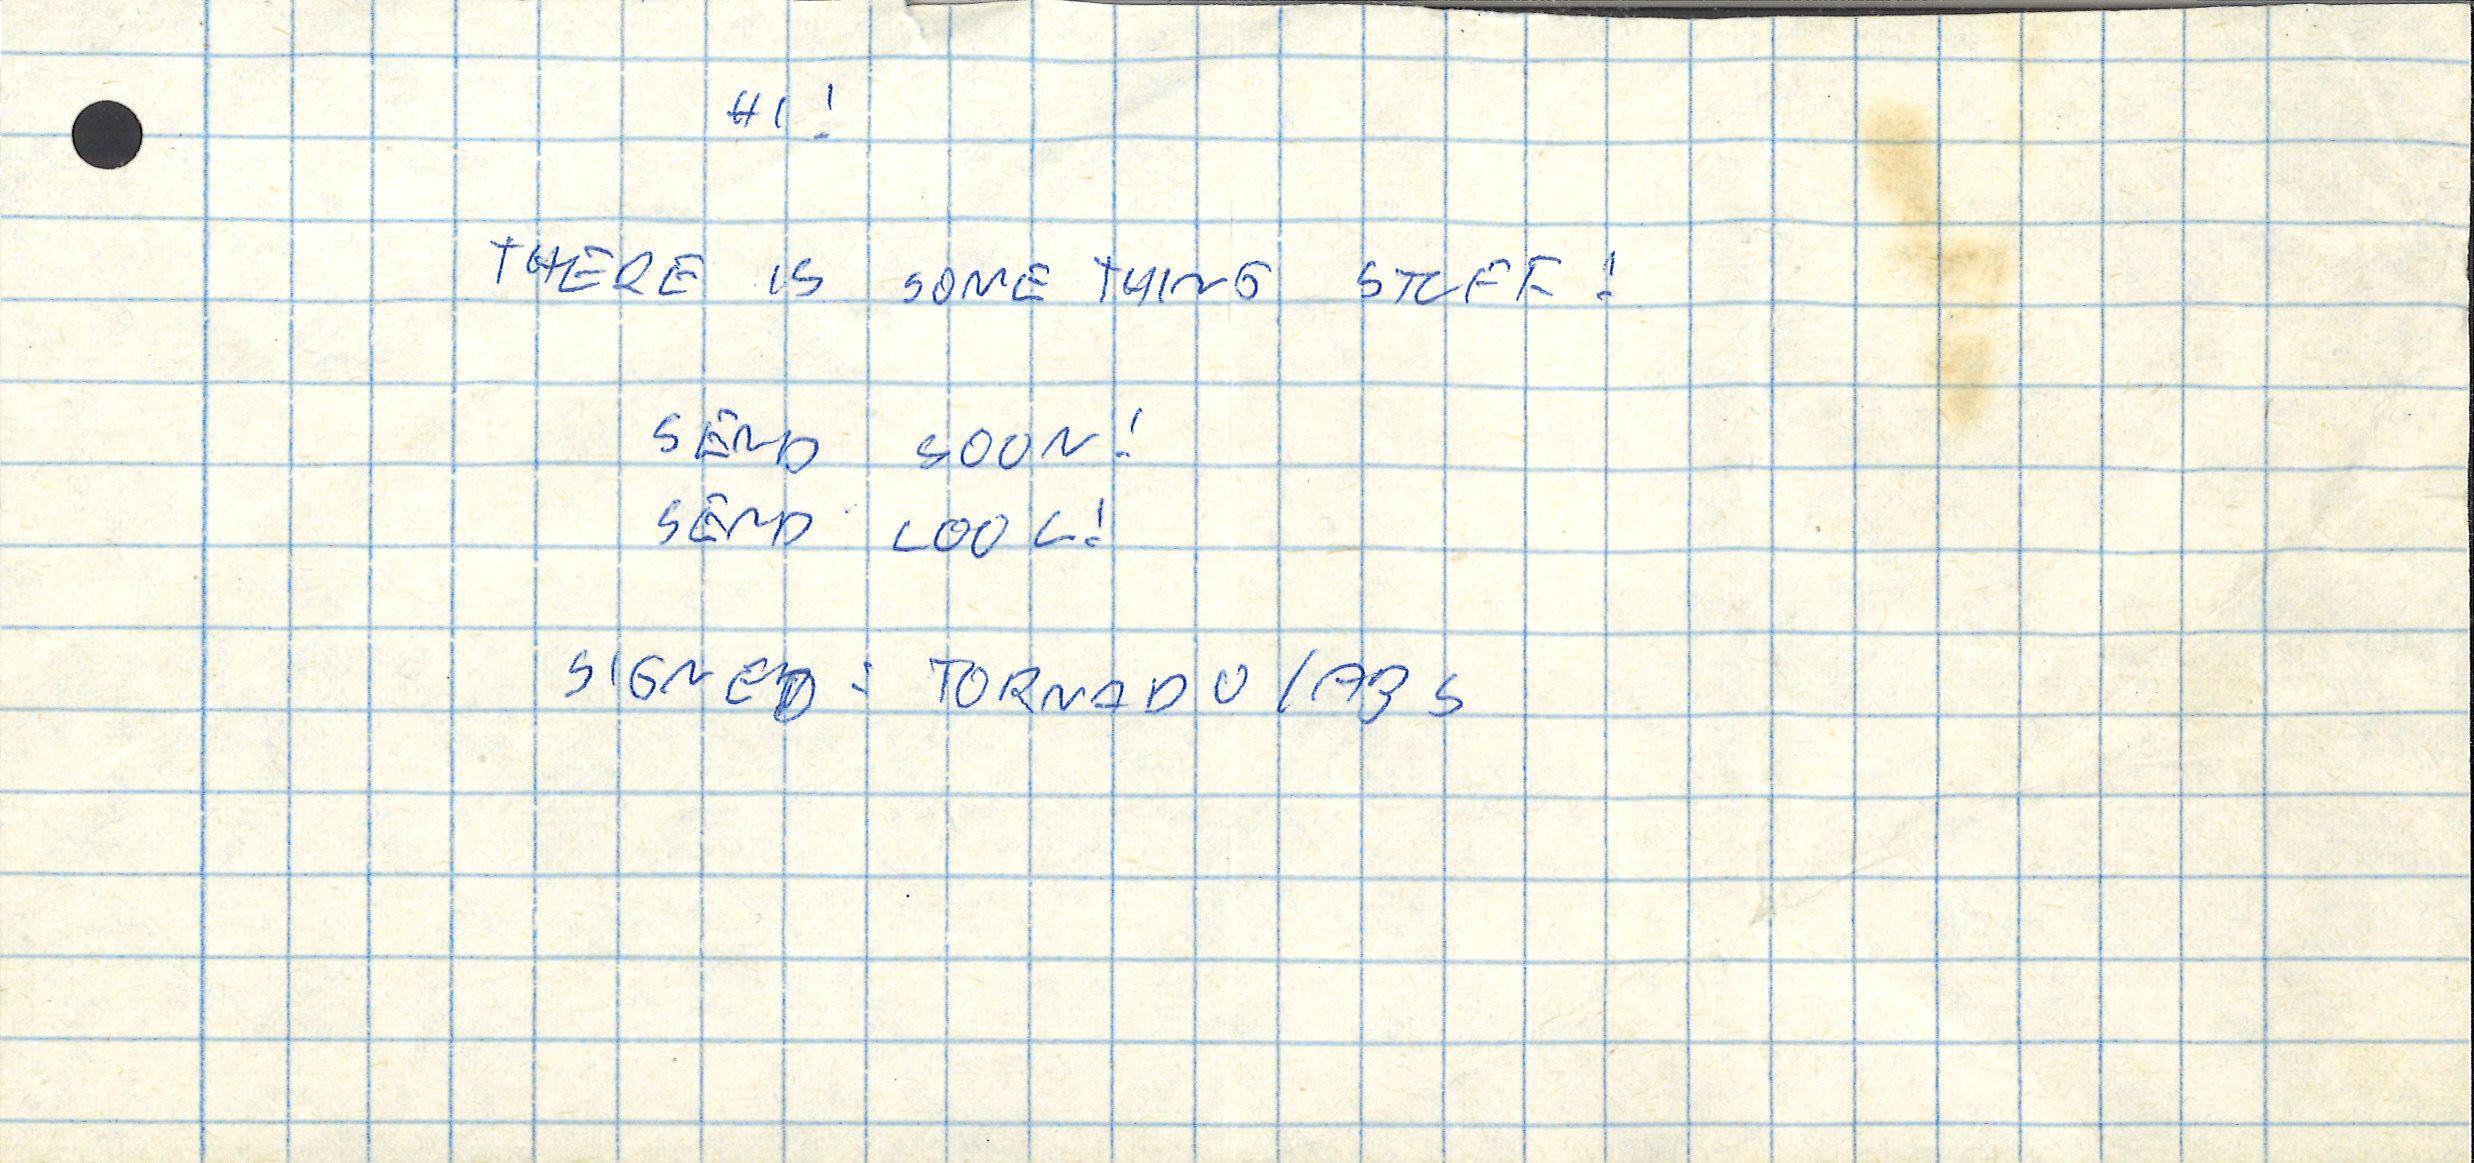 HI!
THERE IS SOMETHING STUFF!
SEND SOON!
SEND COOL!
SIGNED: TORNADO/ABS